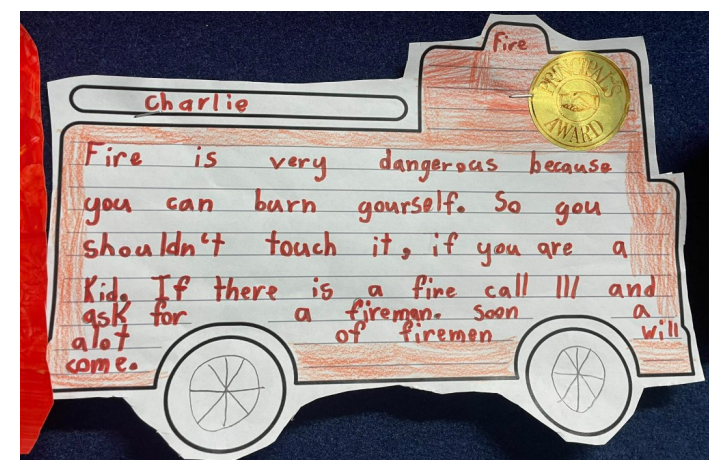 Fire
PRINCIPAL'S AWARD
Charlie
Fire is very dangerous because
you can burn yourself. So you
shouldn't touch it, if you are a
Kid. If there is a fire call 111 and
ask for a fireman. Soon a
alot of firemen will
come.